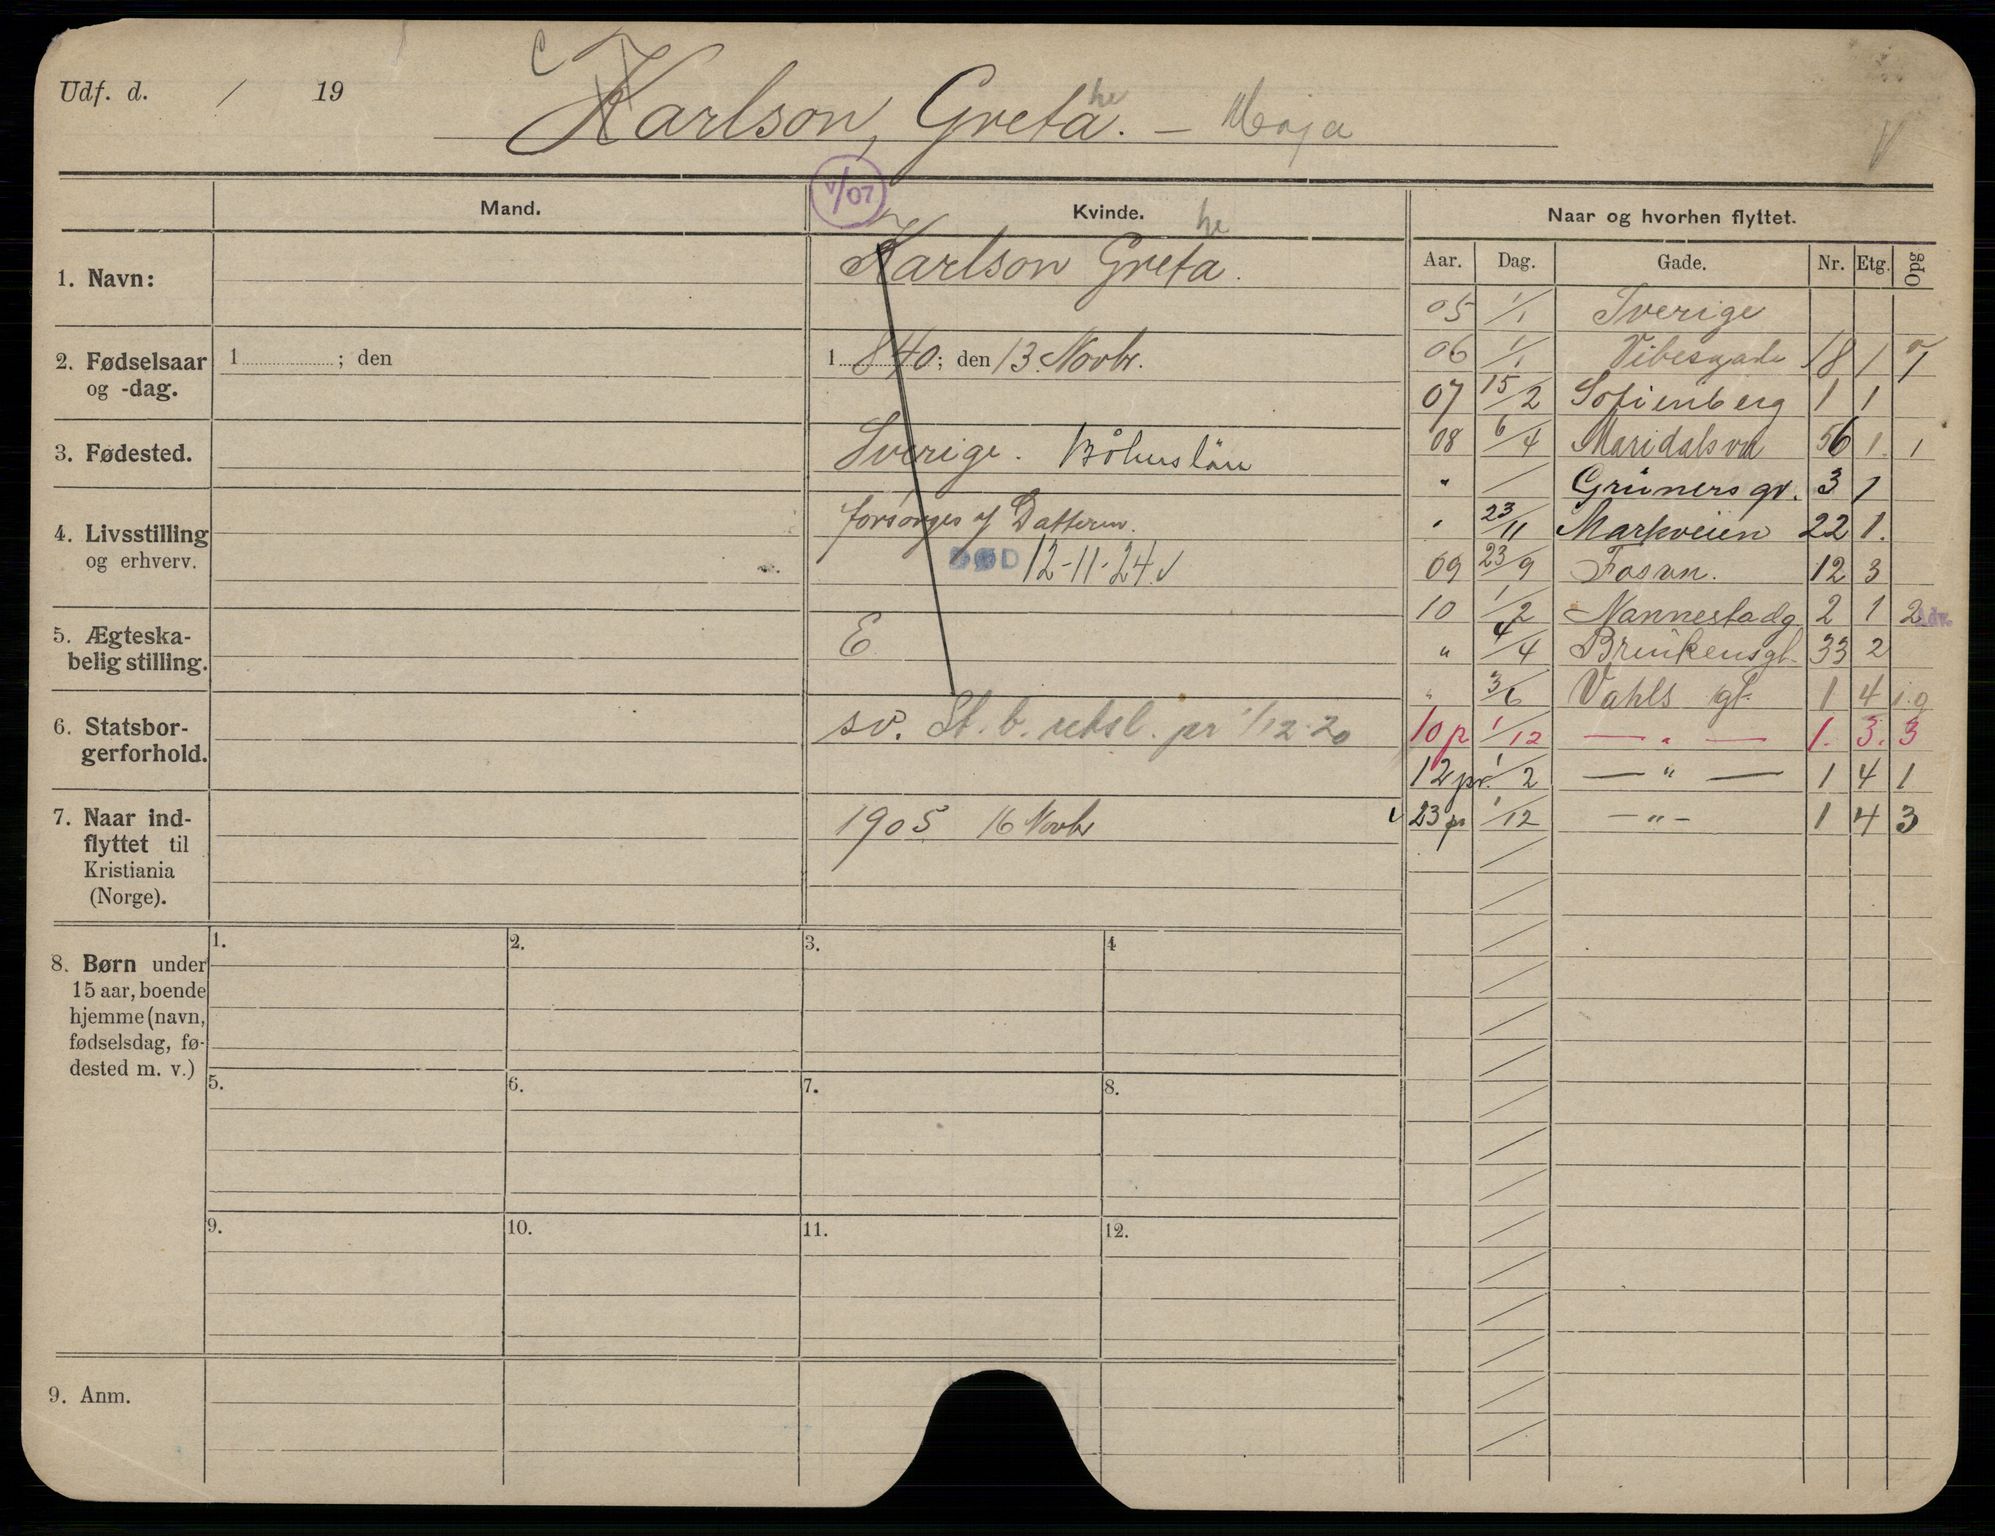 Udf. d. / 19
C Karlson, Greta. he — Maja
V
V/07
Mand.
Kvinde.
Naar og hvorhen flyttet.
Aar. Dag. Gade. Nr. Etg. Opg
1. Navn: Karlson Greta. he
2. Fødselsaar og -dag.
1 ; den
1 840; den 13 Novbr.
3. Fødested. Sverige. Båhuslän
4. Livsstilling og erhverv. forsørges af Datteren.
DØD 12-11-24 v
5. Ægteska-
belig stilling. E
6. Statsbor-
gerforhold. sv. St. b. utsl. pr 1/12 20
7. Naar ind-
flyttet til
Kristiania
(Norge). 1905 16 Novbr
05 1/1 Sverige
06 1/1 Vibesgade 18 1
07 15/2 Sofienberg 1 1
08 6/4 Maridalsvn 56 1. 1
" / Grüners gt. 3 1
" 23/11 Markveien 22 1.
09 23/9 Fosvn. 12 3
10 1/2 Nannestadg 2 1 2 Adv.
" 4/4 Brinkensgt. 33 2
" 3/6 Vahls gt. 1 4 i.g
10 p 1/12 — " — 1. 3. 3
12 pr. 1/2 — " — 1 4 1
v 23 pr 1/12 — " — 1 4 3
8. Børn under
15 aar, boende
hjemme (navn,
fødselsdag, fø-
dested m. v.)
1. 2. 3. 4
5. 6. 7. 8.
9. 10. 11. 12.
9. Anm.